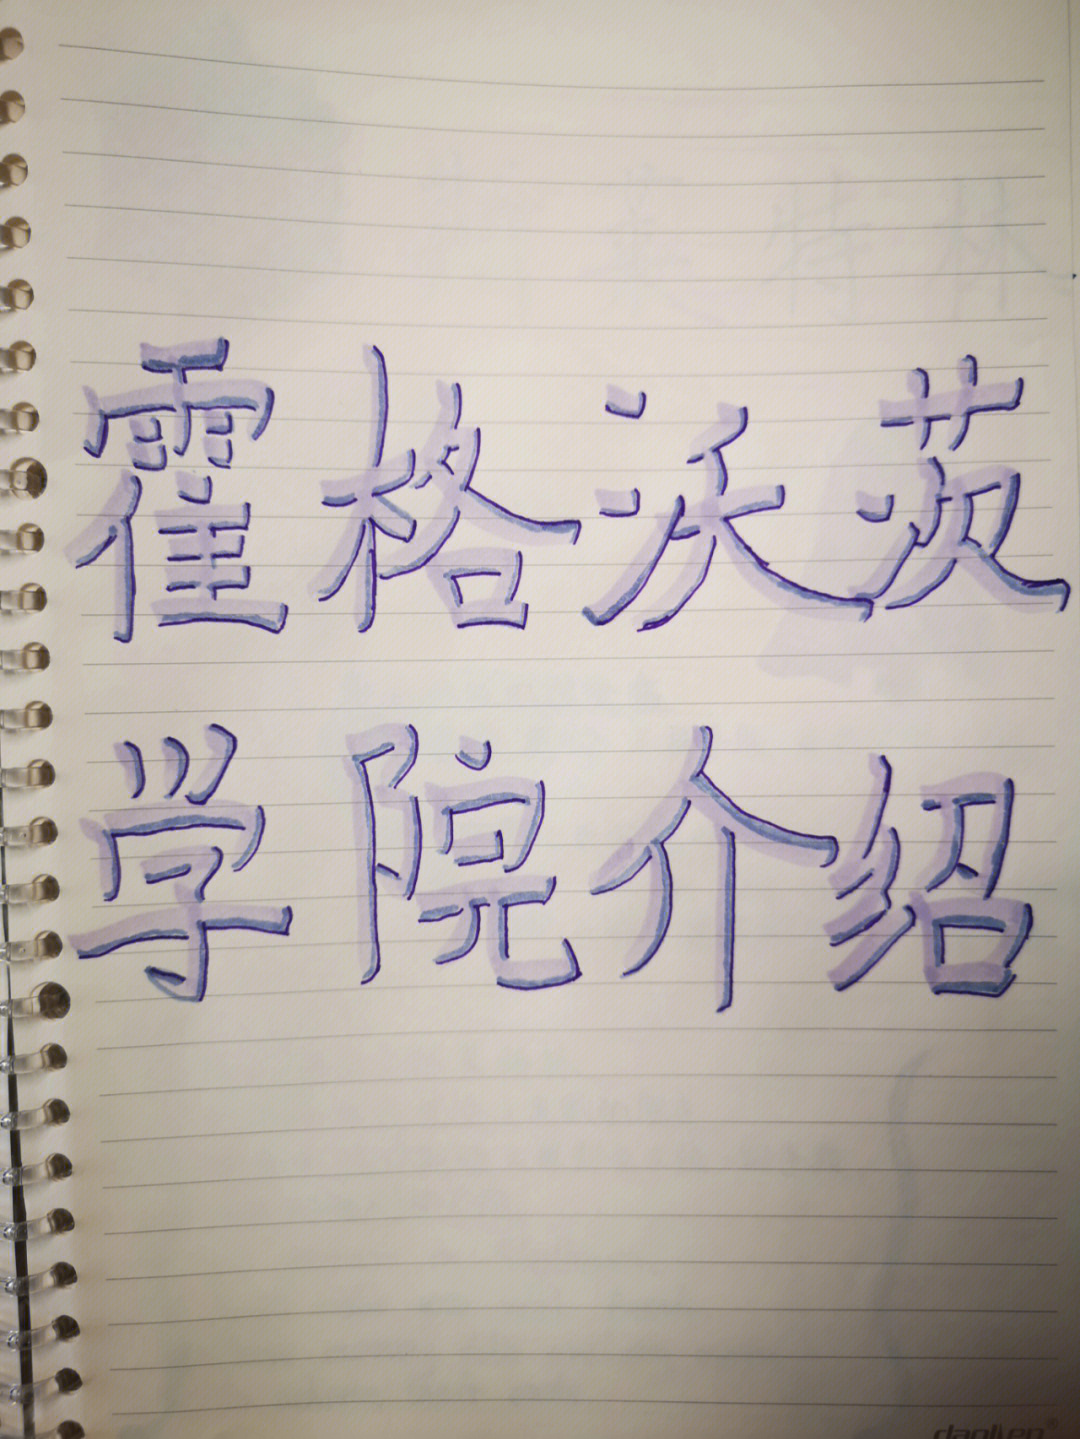 霍格沃茨
学院介绍